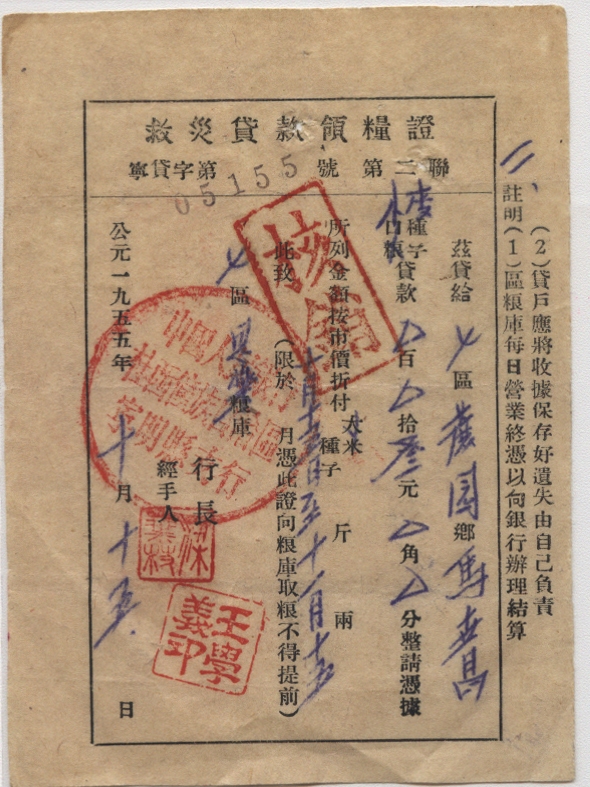 救災貸款領糧證
寧貸字第05155號 第二聯
茲貸給七區養園鄉馬 昌
種子
口粮 貸款 百 拾叁元 角 分整請憑據
所列金額按市價折付 大米 種子 斤 兩
此致 (限於 月憑此證向粮庫取粮不得提前)
十月十五日至十一月十五
七區 粮庫
行長
經手人
公元一九五五年十月十五日
核
中國人民銀行
寧明縣支行
王學義印
註明(1)區粮庫每日營業終憑以向銀行辦理結算
(2)貸戶應將收據保存好遺失由自己負責